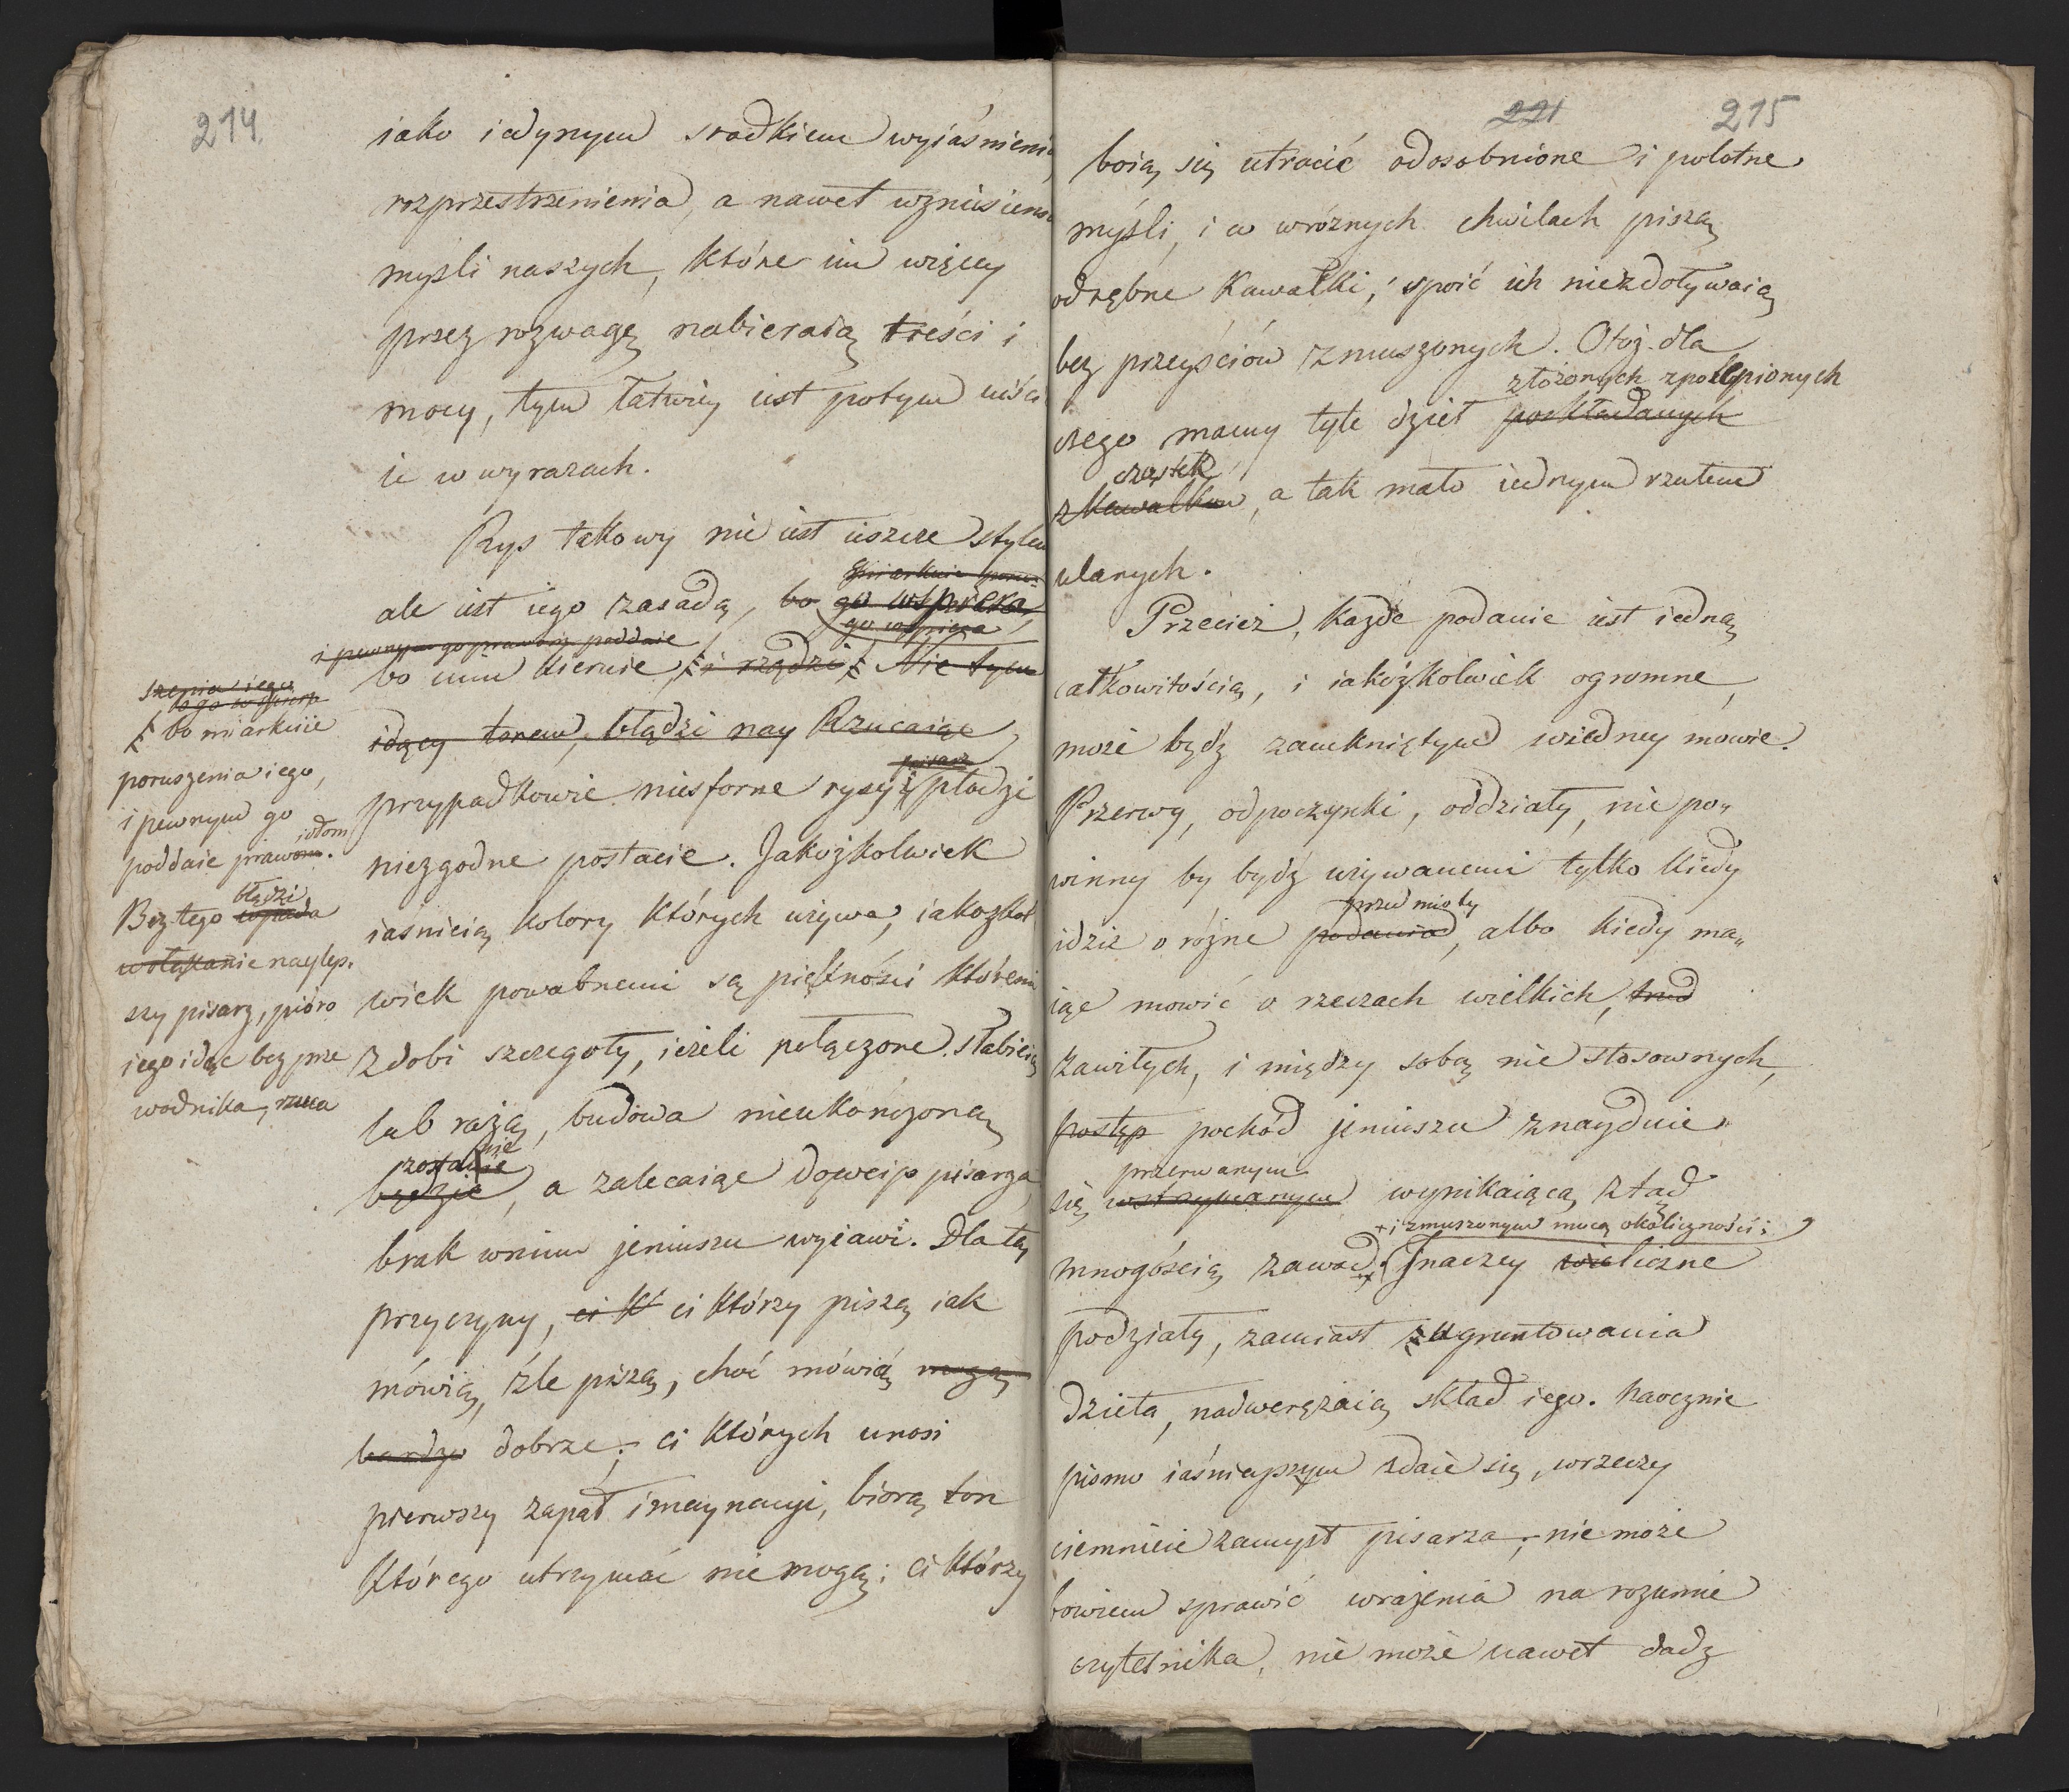 214.
iako iedynym srodkiem wyiaśnienia
rozprzestrzenienia, a nawet wzniesienia
myśli naszych, które im więcey
przez rozwagę nabieraią treści i
mocy, tym łatwiey iest potym uiścić
ie w wyrazach.
Rys takowy nie iest ieszcze stylem
ale iest iego zasadą, bo go wspiera,
go wspiera
i pewnym go prawom poddaie
bo nim kieruie, i rządzi. Nie tym
idący torem, błądzi nay Rzucaiąc
pisarz
przypadkowie niesforne rysy, płodzi
niezgodne postacie. Jakożkolwiek
iaśnieią kolory których używa, iakożkol
wiek powabnemi są piękności któremi
zdobi szczegoły, ieżeli połączone słabieią
lub rażą, budowa nieukończoną
zostanie
będzie, a zalecaiąc dowcip pisarza,
brak wnim jeniuszu wyiawi. Dla tey
przyczyny, ci k ci którzy piszą iak
mówią, źle piszą, choć mówią mogą
bardzo dobrze; ci których unosi
pierwszy zapał imaynacyi, biorą ton
którego utrzymać nie mogą; ci którzy
bo go wspiera
bo miarkuie
poruszenia iego,
i pewnym go
poddaie prawom.
błądzi
Bez tego wpada
w błąkanie naylep.
szy pisarz, pióro
iego idąc bez prze
wodnika, rzuca
221 215
boią się utracić odosobnione i polotne
myśli, i w wróżnych chwilach piszą
odrębne kawałki, spoić ich niezdoływaią
bez przeyściów zmuszonych. Otoż dla
złożonych zpolepionych
czego mamy tyle dzieł poskładanych
cząstek
z kawałków, a tak mało iednym rzutem
ulanych.
Przecież, każde podanie iest iedną
całkowitością, i iakożkolwiek ogromne,
może bydź zamkniętym wiedney mowie.
Przerwy, odpoczynki, oddziały, nie po„
winny by bydź używanemi tylko kiedy
przedmioty
idzie o różne podania, albo kiedy ma„
iąc mowić o rzeczach wielkich, trud
zawiłych, i między sobą nie stosownych,
postęp pochód jeniuszu znayduie
przerwanym
się wstrzymanym wynikaiącą ztąd
+ i zmuszonym mocą okoliczności;
mnogością zawad. + Jnaczey wieliczne
podziały, zamiast ugruntowania
dzieła, nadwerężaią skład iego. Naocznie
pismo iaśnieyszym zdaie się, wrzeczy
ciemnieie zamysł pisarza; nie może
bowiem sprawić wrażenia na rozumie
czytelnika, nie może nawet dadz